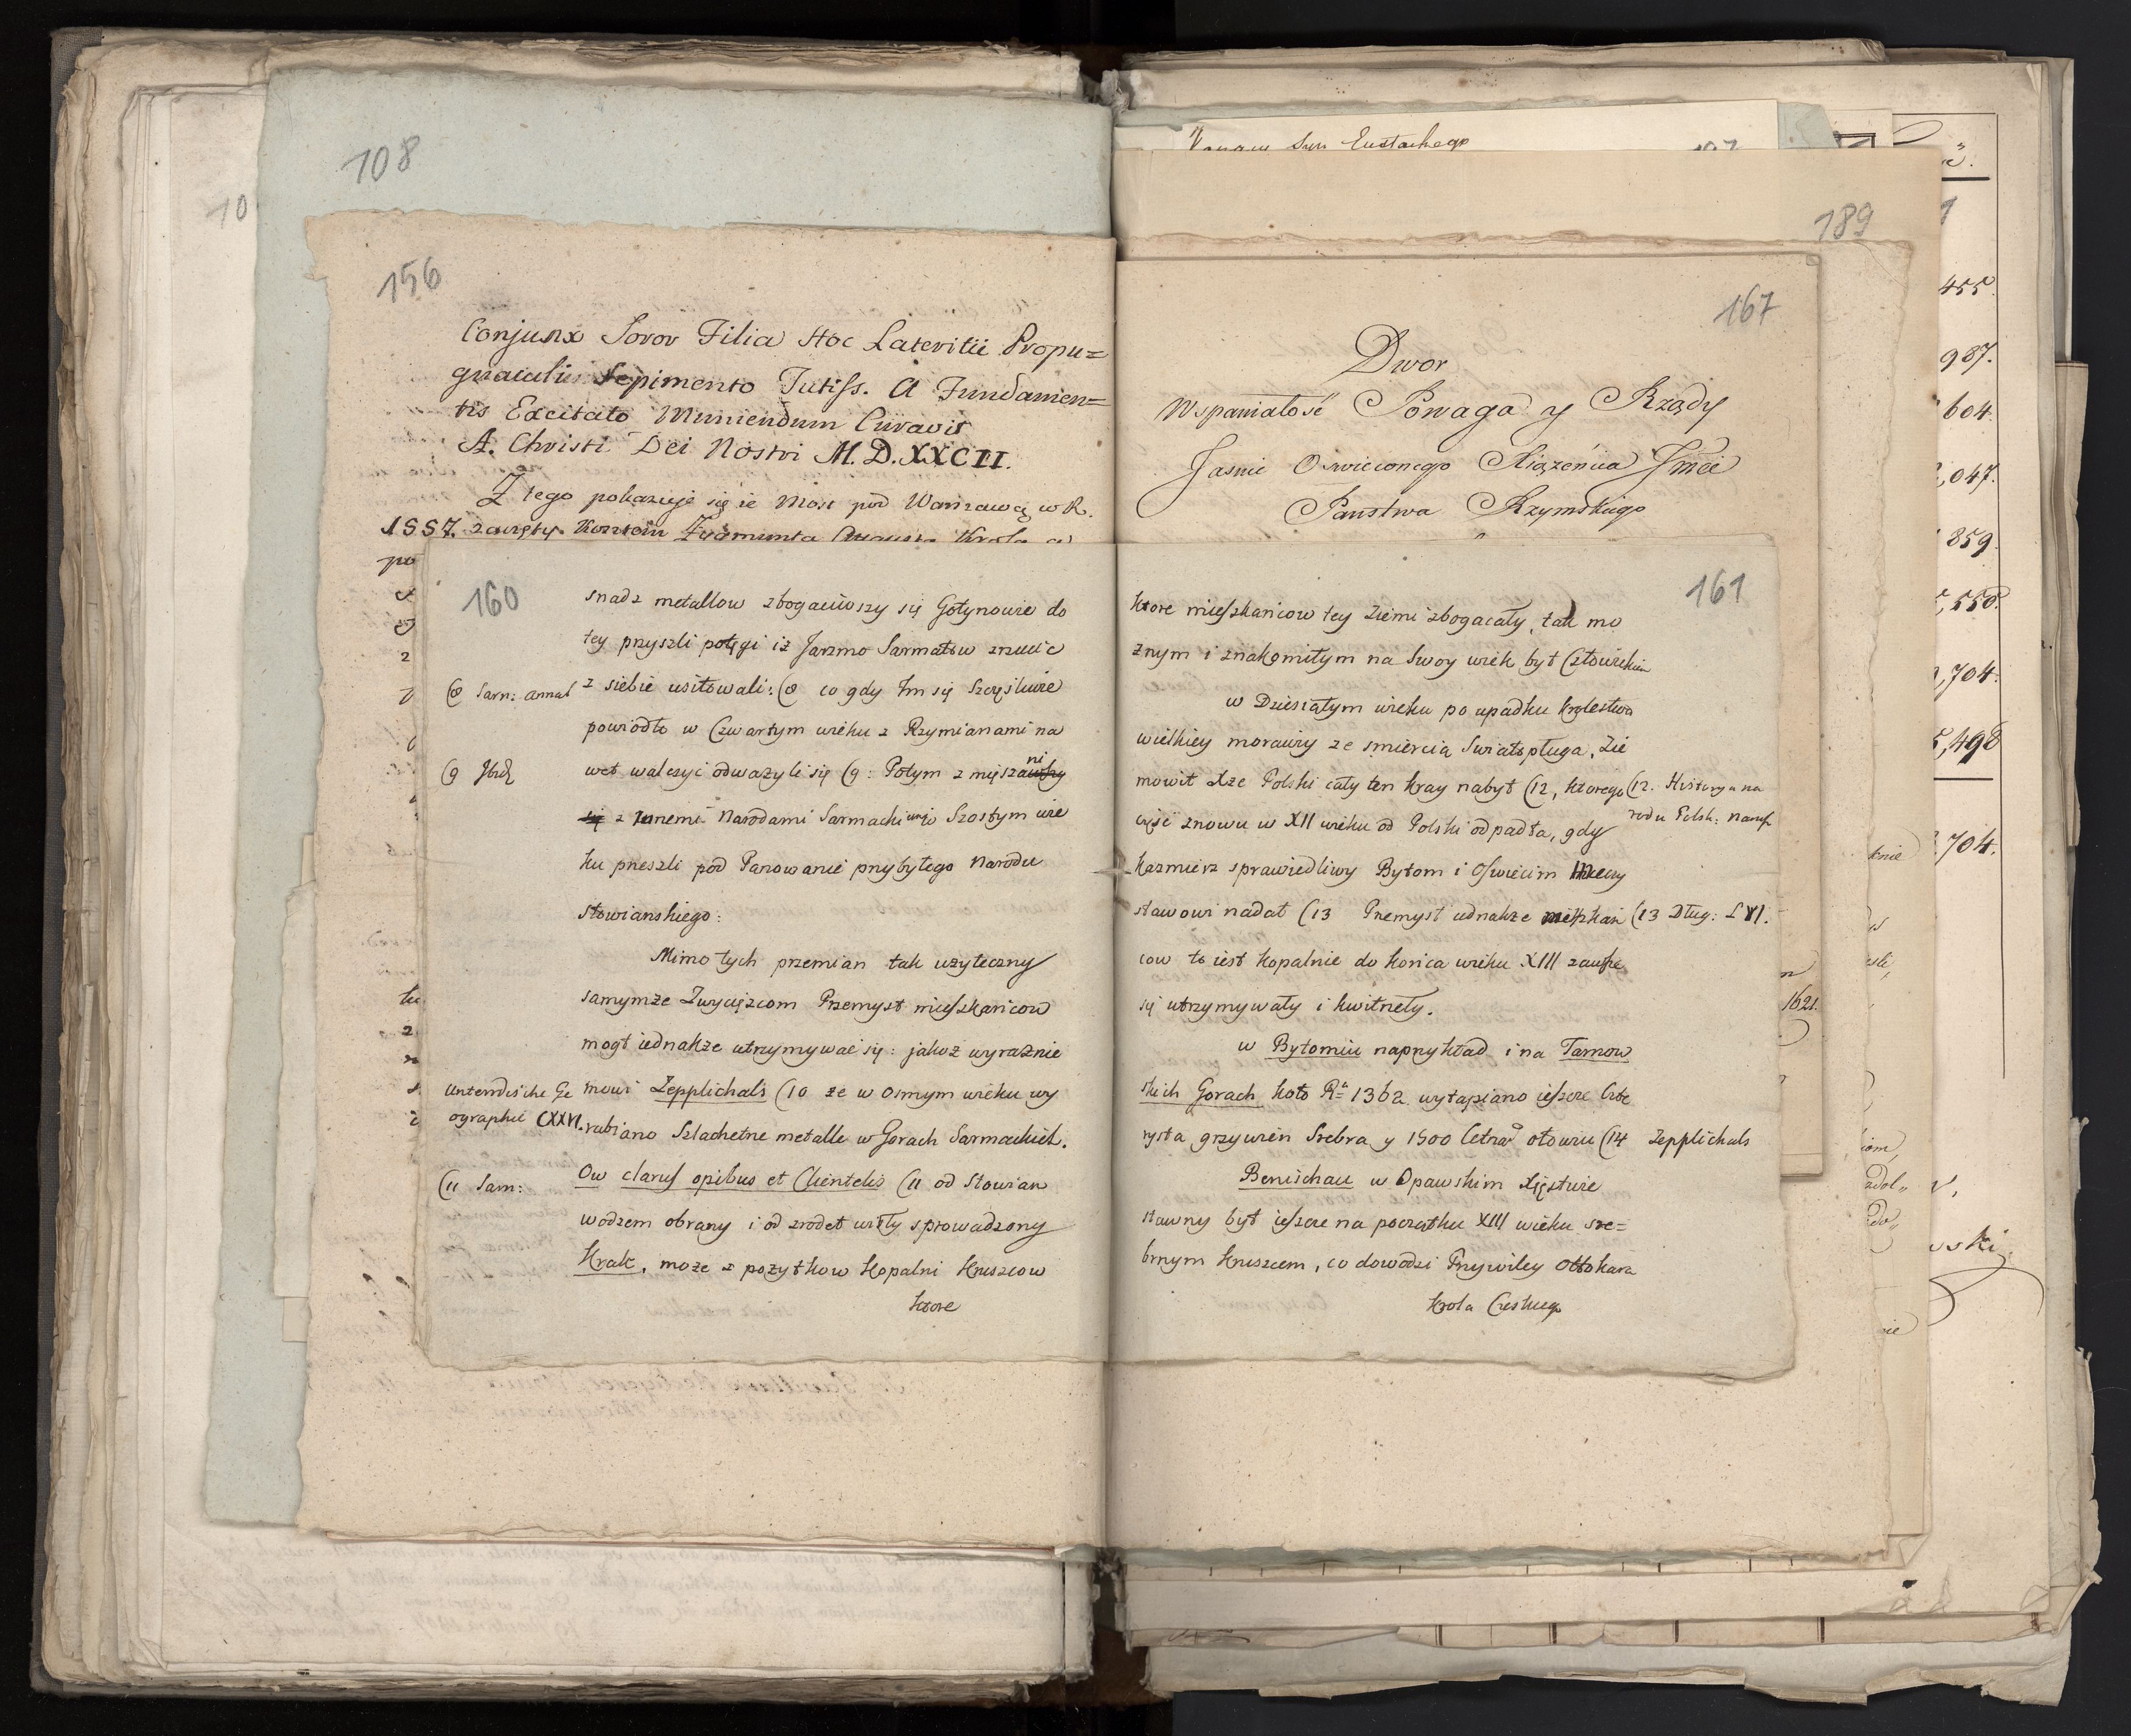 108
10
156
Conjunx Soror Filia Hoc Lateritii Propu=
gnaculi Sepimento Tutiss. A Fundamen=
tis Excitato Muniendum Curavit
A. Christi Dei Nostri M.D.XXCII.
Z tego pokazuje się że Most pod Warszawą w R.
1557. zaczęty Kosztem Zygmunta Augusta Krola
po
160
snadz metallow zbogaciwszy się Gotynowie do
tey przyszli potęgi iż Jarzmo Sarmatow zrzucić
(8 Sarn: annal
z siebie usiłowali: (8 co gdy Im się szczęśliwie
powiodło w Czwartym wieku z Rzymianami na
(9 Ibid
wet walczyć odważyli się (9: Potym zmięszani
się z innemi Narodami Sarmackiemi w Szostym wie
ku przeszli pod Panowanie przybyłego Narodu
Słowianskiego:
Mimo tych przemian tak użyteczny
samymże Zwycięzcom Przemysł mieszkańcow
mogł iednakże utrzymywać się: jakoż wyraźnie
mowi Zepplichals (10 że w Osmym wieku wy
ographie CXXVI.
rabiano Szlachetne metalle w Gorach Sarmackich.
(11 Sarn:
Ow clarus opibus et Clientelis (11 od Słowian
wodzem obrany i od zrodeł wisły sprowadzony
Krak, może z pożytkow Kopalni Kruszcow
ktore
Eustachego
189
167
Dwor
Wspaniałość Powaga y Rządy
Jasnie Oswieconego Xiążęńcia Jmći
Panstwa Rzymskiego
161
ktore mieszkańcow tey Ziemi zbogacały, tak mo
żnym i znakomitym na Swoy wiek był Człowiekiem
w Dziesiątym wieku po upadku krolestwa
wielkiey morawy ze smiercią Swiatopługa, Zie
mowit Xże Polski cały ten Kray nabył (12, ktorego
(12. Historya na
rodu Polsk: Narusz
część znowu w XII wieku od Polski odpadła, gdy
Kazmierz sprawiedliwy Bytom i Oswiecim Mieczy
sławowi nadał (13 Przemysł iednakże mieszkań
(13 Dług: L VI.
cow to iest Kopalnie do końca wieku XIII zawsze
się utrzymywały i kwitnęły.
w Bytomiu naprzykład i na Tarnow
skich Gorach koło Ru 1362 wytapiano ieszcze Czte
rysta grzywien Srebra y 1500 Cetnar. ołowiu (14
Zepplichals
Benischau w Opawskim Xięstwie
sławny był ieszcze na początku XIII wieku sre=
brnym kruszcem, co dowodzi Przywiley Ottokara
krola Czeskiego
1621.
455.
987.
604.
,047.
859.
,550.
,704.
,498
704.